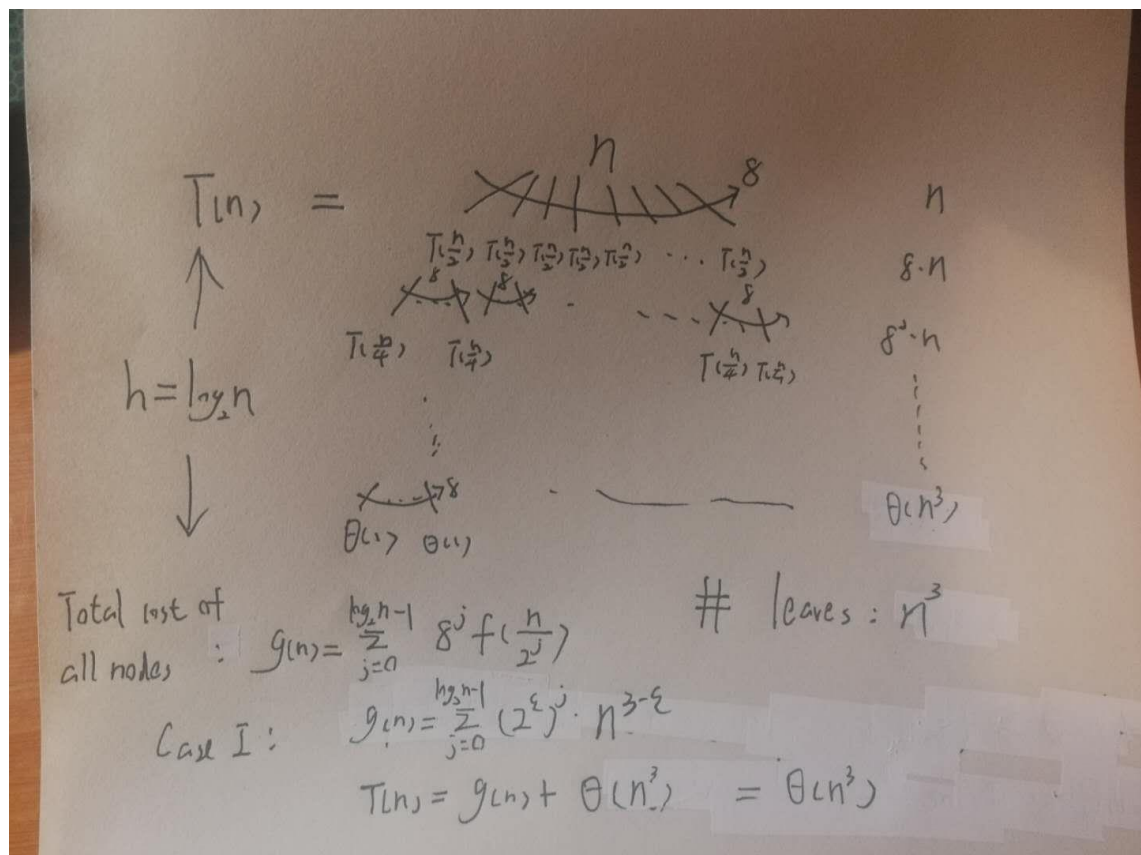 T(n) = n 8 n
T(n/2) T(n/2) T(n/2) T(n/2) T(n/2) ... T(n/2) 8·n
8 8 8
T(n/4) T(n/4) T(n/4) T(n/4) 8^j·n
h = log_2 n
8
θ(1) θ(1) θ(n^3)
# leaves : n^3
Total cost of
all nodes : g(n) = Σ_{j=0}^{log_2 n-1} 8^j f(n/2^j)
Case I : g(n) = Σ_{j=0}^{log_2 n-1} (2^ε)^j · n^{3-ε}
T(n) = g(n) + θ(n^3) = θ(n^3)